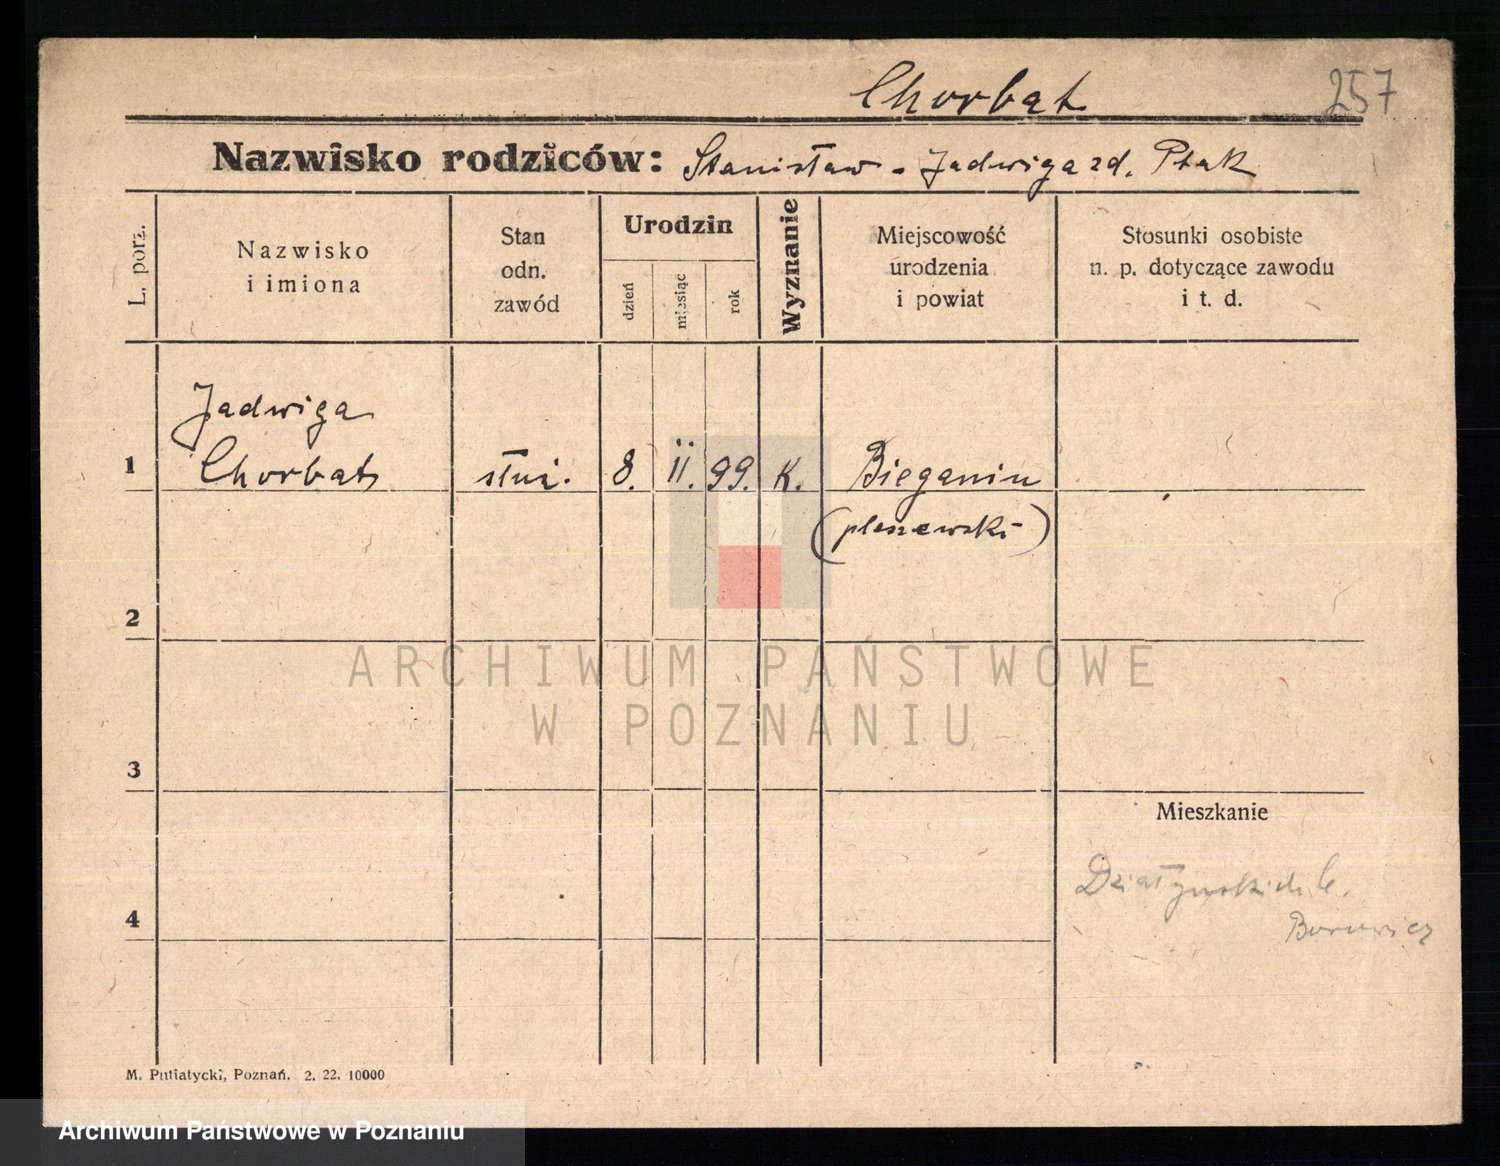 Chorbat 257
Nazwisko rodziców: Stanisław - Jadwiga zd. Ptak
L. porz.
Nazwisko
i imiona
Stan
odn.
zawód
Urodzin
dzień
miesiąc
rok
Wyznanie
Miejscowość
urodzenia
i powiat
Stosunki osobiste
n. p. dotyczące zawodu
i t. d.
Jadwiga
1 Chorbat służ. 8. II. 99. K. Bieganin
(pleszewski)
2
ARCHIWUM PAŃSTWOWE
W POZNANIU
3
Mieszkanie
Działyńskich 6.
Borowicz
4
M. Putiatycki, Poznań. 2. 22. 10000
Archiwum Państwowe w Poznaniu